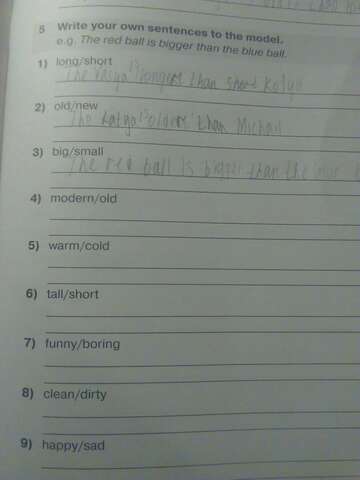 5 Write your own sentences to the model.
e.g. The red ball is bigger than the blue ball.
1) long/short
The is longer than short Kolya
2) old/new
The Katya is older than Michail
3) big/small
The red ball is bigger than the
4) modern/old
5) warm/cold
6) tall/short
7) funny/boring
8) clean/dirty
9) happy/sad